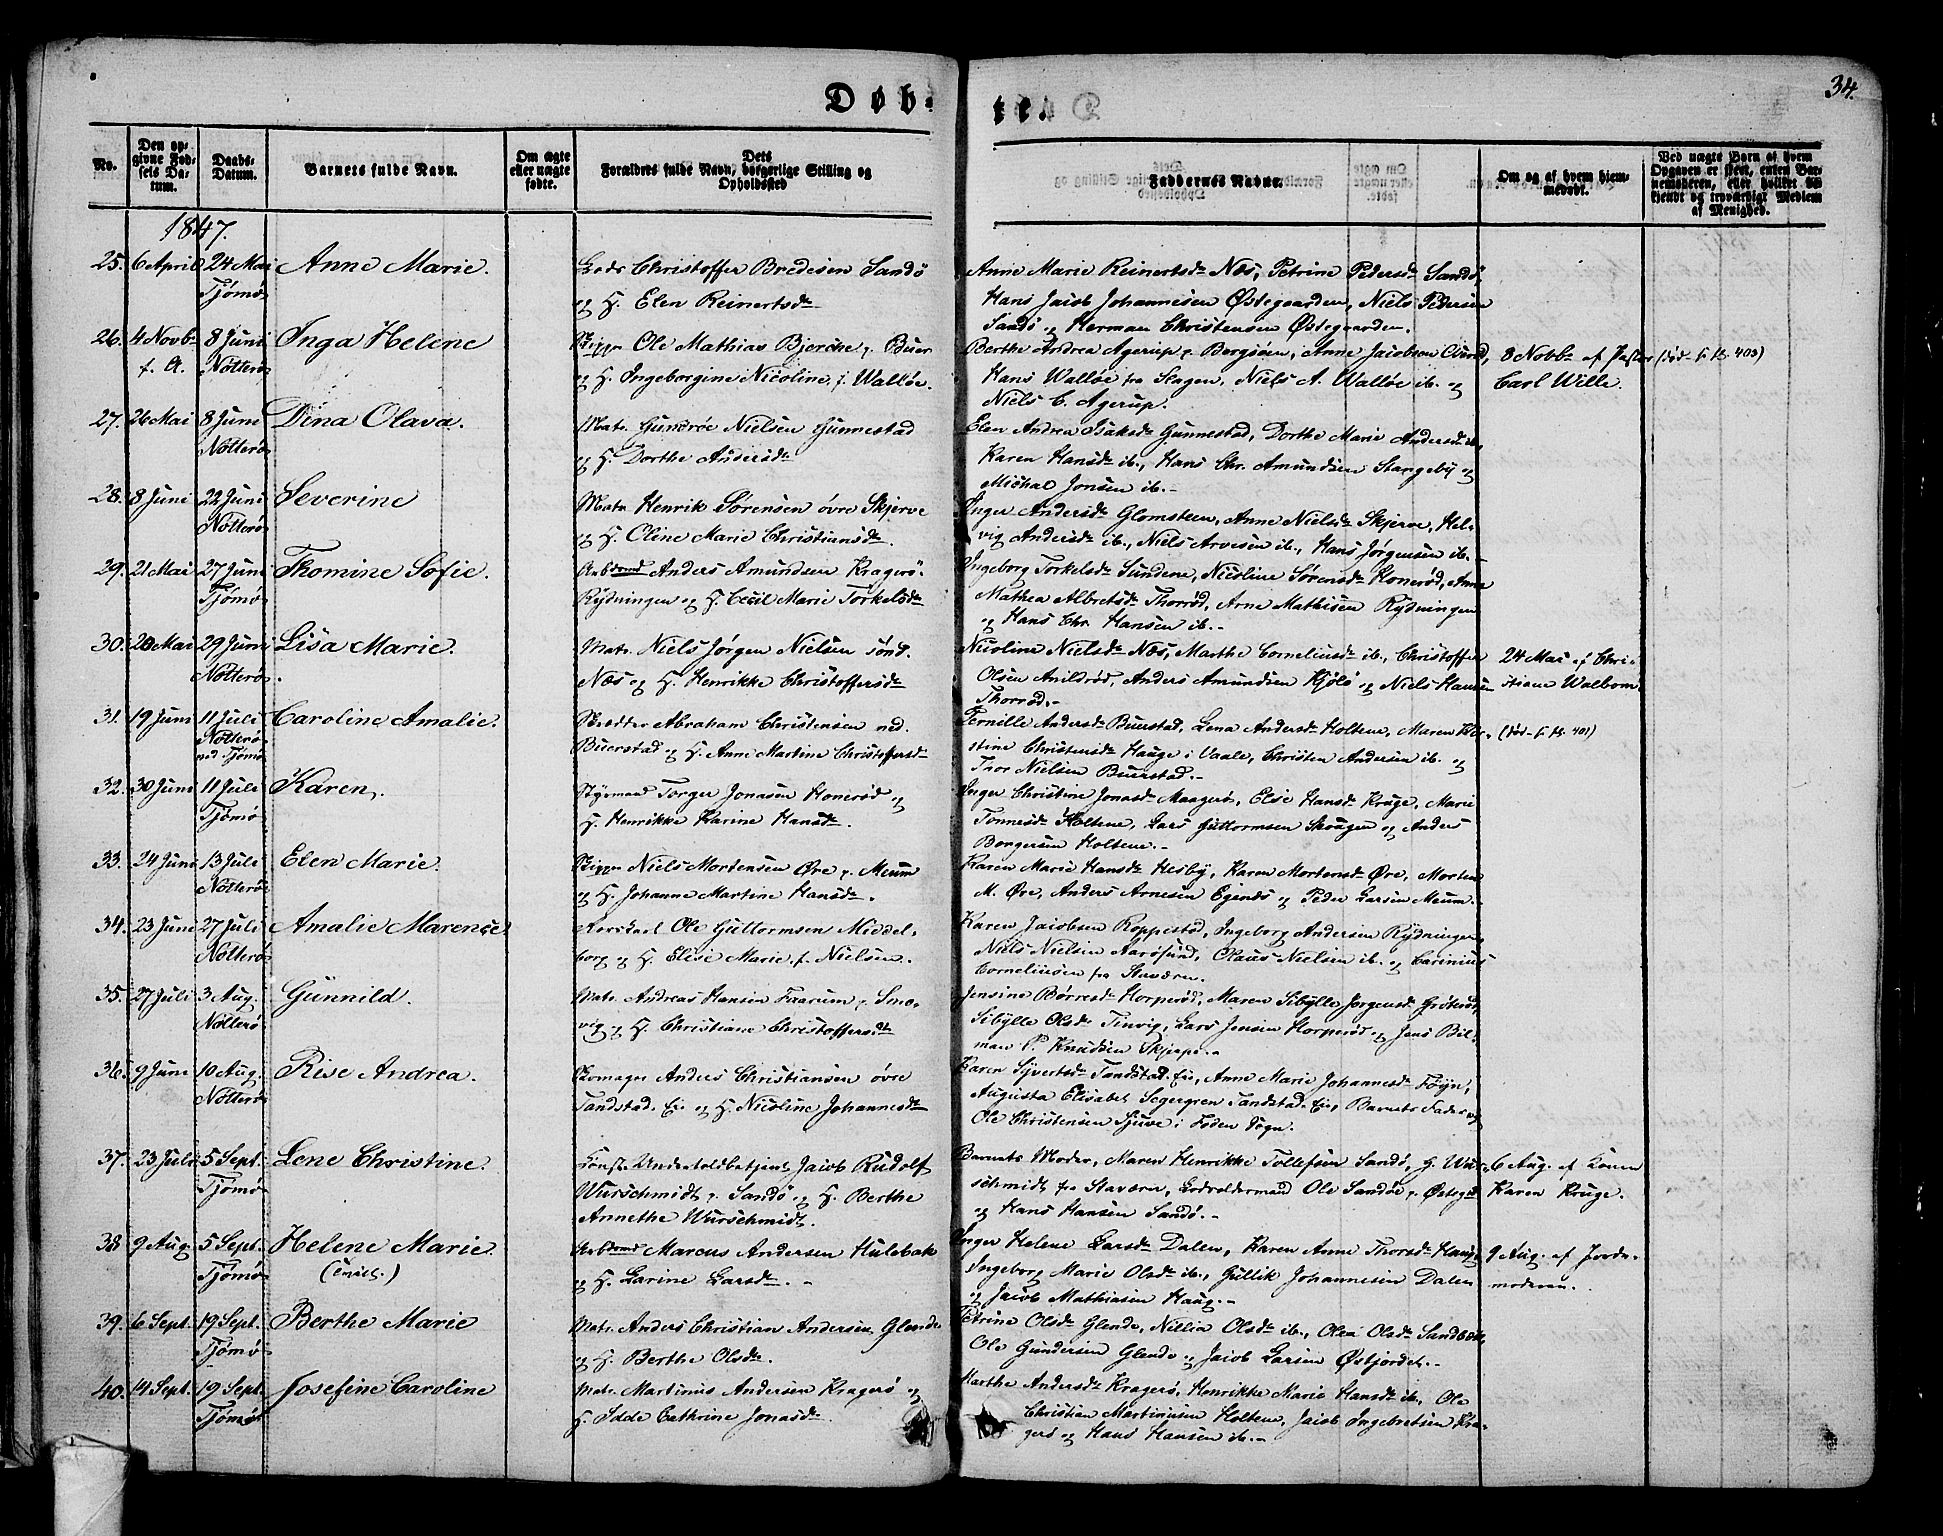 Døb-
te.
34.
No.
Den op-
givne Fød-
sels Da-
tum.
Daabs-
Datum.
Barnets fulde Navn.
Om ægte
eller uægte
fødte.
Dets
Forældres fulde Navn, borgerlige Stilling og
Opholdssted
Faddernes Navne.
Om og af hvem hjem-
medøbt.
Ved uægte Børn af hvem
Opgaven er skeet, enten Bar-
nemoderen, eller hvilket be-
kjendt og troværdigt Medlem
af Menighed.
1847.
25. 6 April 24 Mai Anne Marie. Lods Christoffer Bredesen Sandö
Tjömö og H. Elen Reinertsdr
Anne Marie Reinertsdr Næs, Petrine Pedersdr Sandö,
Hans Jacob Johannesen Østegaarden, Niels Pedersen
Sandö og Herman Christensen Østegaarden.
26. 4 Novb. 8 Juni Inga Helene Skippr Ole Mathias Bjerche p. Buer
f. A. Nötterö og H. Ingeborgine Nicoline f. Wallöe.
Berthe Andrea Agerup p. Bergsöen, Anne Jacobsen
Hans Wallöe fra Slagen, Niels A. Wallöe ib. og
Niels C. Agerup.
8 Novbr af Pastor
Carl Wille.
27. 26 Mai 8 Juni Dina Olava. Matr. Guneröe Nielsen Gunnestad
Nötterö og H. Dorthe Andersdr
Elen Andrea Isaksdr Gunnestad, Dorthe Marie Andersdr ib,
Karen Hansdr ib., Hans Chr. Amundsen Stangeby og
Michal Jonsen ib.-
28. 8 Juni 22 Juni Severine Matr. Henrik Sörensen övre Skjerve
Nötterö og H. Oline Marie Christiansdr.
Inger Andersdr Glomsteen, Anne Nielsdr Skjerve, Hel-
vig Andersdr ib., Niels Arvesen ib., Hans Jörgensen ib.-
29. 21 Mai 27 Juni Thomine Sofie. Arbmd Anders Amundsen Kragerö-
Tjömö Rydningen og H. Cecil Marie Torkelsdr
Ingeborg Torkelsdr Sundene, Nicoline Sörensdr Honeröd, Anne
Mathea Albretsdr Thorröd, Arne Mathisen Rydningen
og Hans Chr. Hansen ib.-
30. 20 Mai 29 Juni Lisa Marie. Matr. Niels Jörgen Nielsen sönd.
Nötterö Næs og H. Henrikke Christoffersdr
Nicoline Nielsdr Næs, Marthe Corneliusdr ib., Christoffer
Olsen Anildröd, Anders Amundsen Kjölö og Niels Hansen
Thorröd.-
24 Mai af Chri-
stiane Walbom
31. 19 Juni 11 Juli Caroline Amalie. Skrædder Abraham Christensen ned.
Nötterö
ved Tjömö Buerstad og H. Anne Martine Christoffersdr
Pernille Andersdr Buerstad, Lena Andersdr Holtene, Maren Kir-
stine Christensdr Hauge i Vaale, Christen Andersen ib. og
Thor Nielsen Buerstad.-
32. 30 Juni 11 Juli Karen. Styrmand Torger Jonasen Honeröd og
Tjömö H. Henrikke Karine Hansdr.
Inger Christine Jonasdr Maagerö, Else Hansdr Kruge, Marie
Tönnesdr Holtene, Lars Guttormsen Skougen og Anders
Borgersen Holtene.-
33. 24 Juni 13 Juli Elen Marie. Skippr Niels Mortensen Øre p. Meum
Nötterö og H. Johanne Martine Hansdr.
Karen Marie Hansdr Hesby, Karen Mortensdr Øre, Morten
M. Øre, Anders Arnesen Egenæs og Peder Larsen Meum.-
34. 23 Juni 27 Juli Amalie Marense Korskarl Ole Guttormsen Middel-
Nötterö borg og H. Elise Marie f. Nielsen.
Karen Jacobsen Roppestad, Ingeborg Andersen Rydningen,
Niels Nielsen Aarösund, Olaus Nielsen ib. og Carinius
Corneliusen fra Staværn.
35. 27 Juli 3 Aug. Gunnild. Matr. Andreas Hansen Fixarum p. Smo-
Nötterö vig og H. Christiane Christoffersdr
Jensine Börresdr Horperöd, Maren Sibylle Jörgensdr Gröteröd,
Sibylle Olsdr Tinvig, Lars Jensen Horperöd og Jens Bil-
man P. Knudsen Skjerpe.-
36. 9 Juni 10 Aug. Rise Andrea. Skomager Anders Christiansen övre
Nötterö Tandstad. Eie og H. Nicoline Johannesdr
Karen Syvertsdr Tandstad. Eie, Anne Marie Johannesdr Föyn,
Augusta Elisabet Segergren Tandstad. Eie, Barnets Fader og
Ole Christensen Tjuve i Foden Sogn.
37. 23 Juli 5 Sept. Lene Christine. Const. Undertoldbetjent Jacob Rudolf
Tjömö Wurschmidt p. Sandö og H. Berthe
Annethe Wurschmidt.
Barnets Moder, Maren Henrikke Tollefsen Sandö, G. Wur-
schmidt fra Staværn, Lodsoldermand Ole Sandöe p. Østegd
og Hans Hansen Sandö.-
6 Aug. af Konen
Karen Kruge.
38 9 Aug. 5 Sept. Helene Marie Arbmd Marcus Andersen Hulebak
Tjömö og H. Larine Larsdr.-
Inger Helene Larsdr Dalen, Karen Anne Thorsdr Haug,
Ingeborg Marie Olsdr ib., Gullik Johannesen Dalen
og Jacob Mathiasen Haug.-
9 Aug. af Jorde-
moderen.
39. 6 Sept. 19 Sept. Berthe Marie Matr. Anders Christian Andersen Glende
Tjömö og H. Berthe Olsdr.
Petrine Olsdr Glende, Nillia Olsdr ib., Olea Olsdr Sandbek,
Ole Gundersen Glende og Jacob Larsen Østjordet.-
40. 14 Sept. 19 Sept. Josefine Caroline Matr. Martinus Andersen Kragerö og
Tjömö H. Idde Cathrine Jonasdr
Marthe Andersdr Kragerö, Henrikke Marie Hansdr ib., Ole
Christian Martinusen Holtene, Jacob Ingebretsen Kra-
gerö og Hans Hansen ib.-